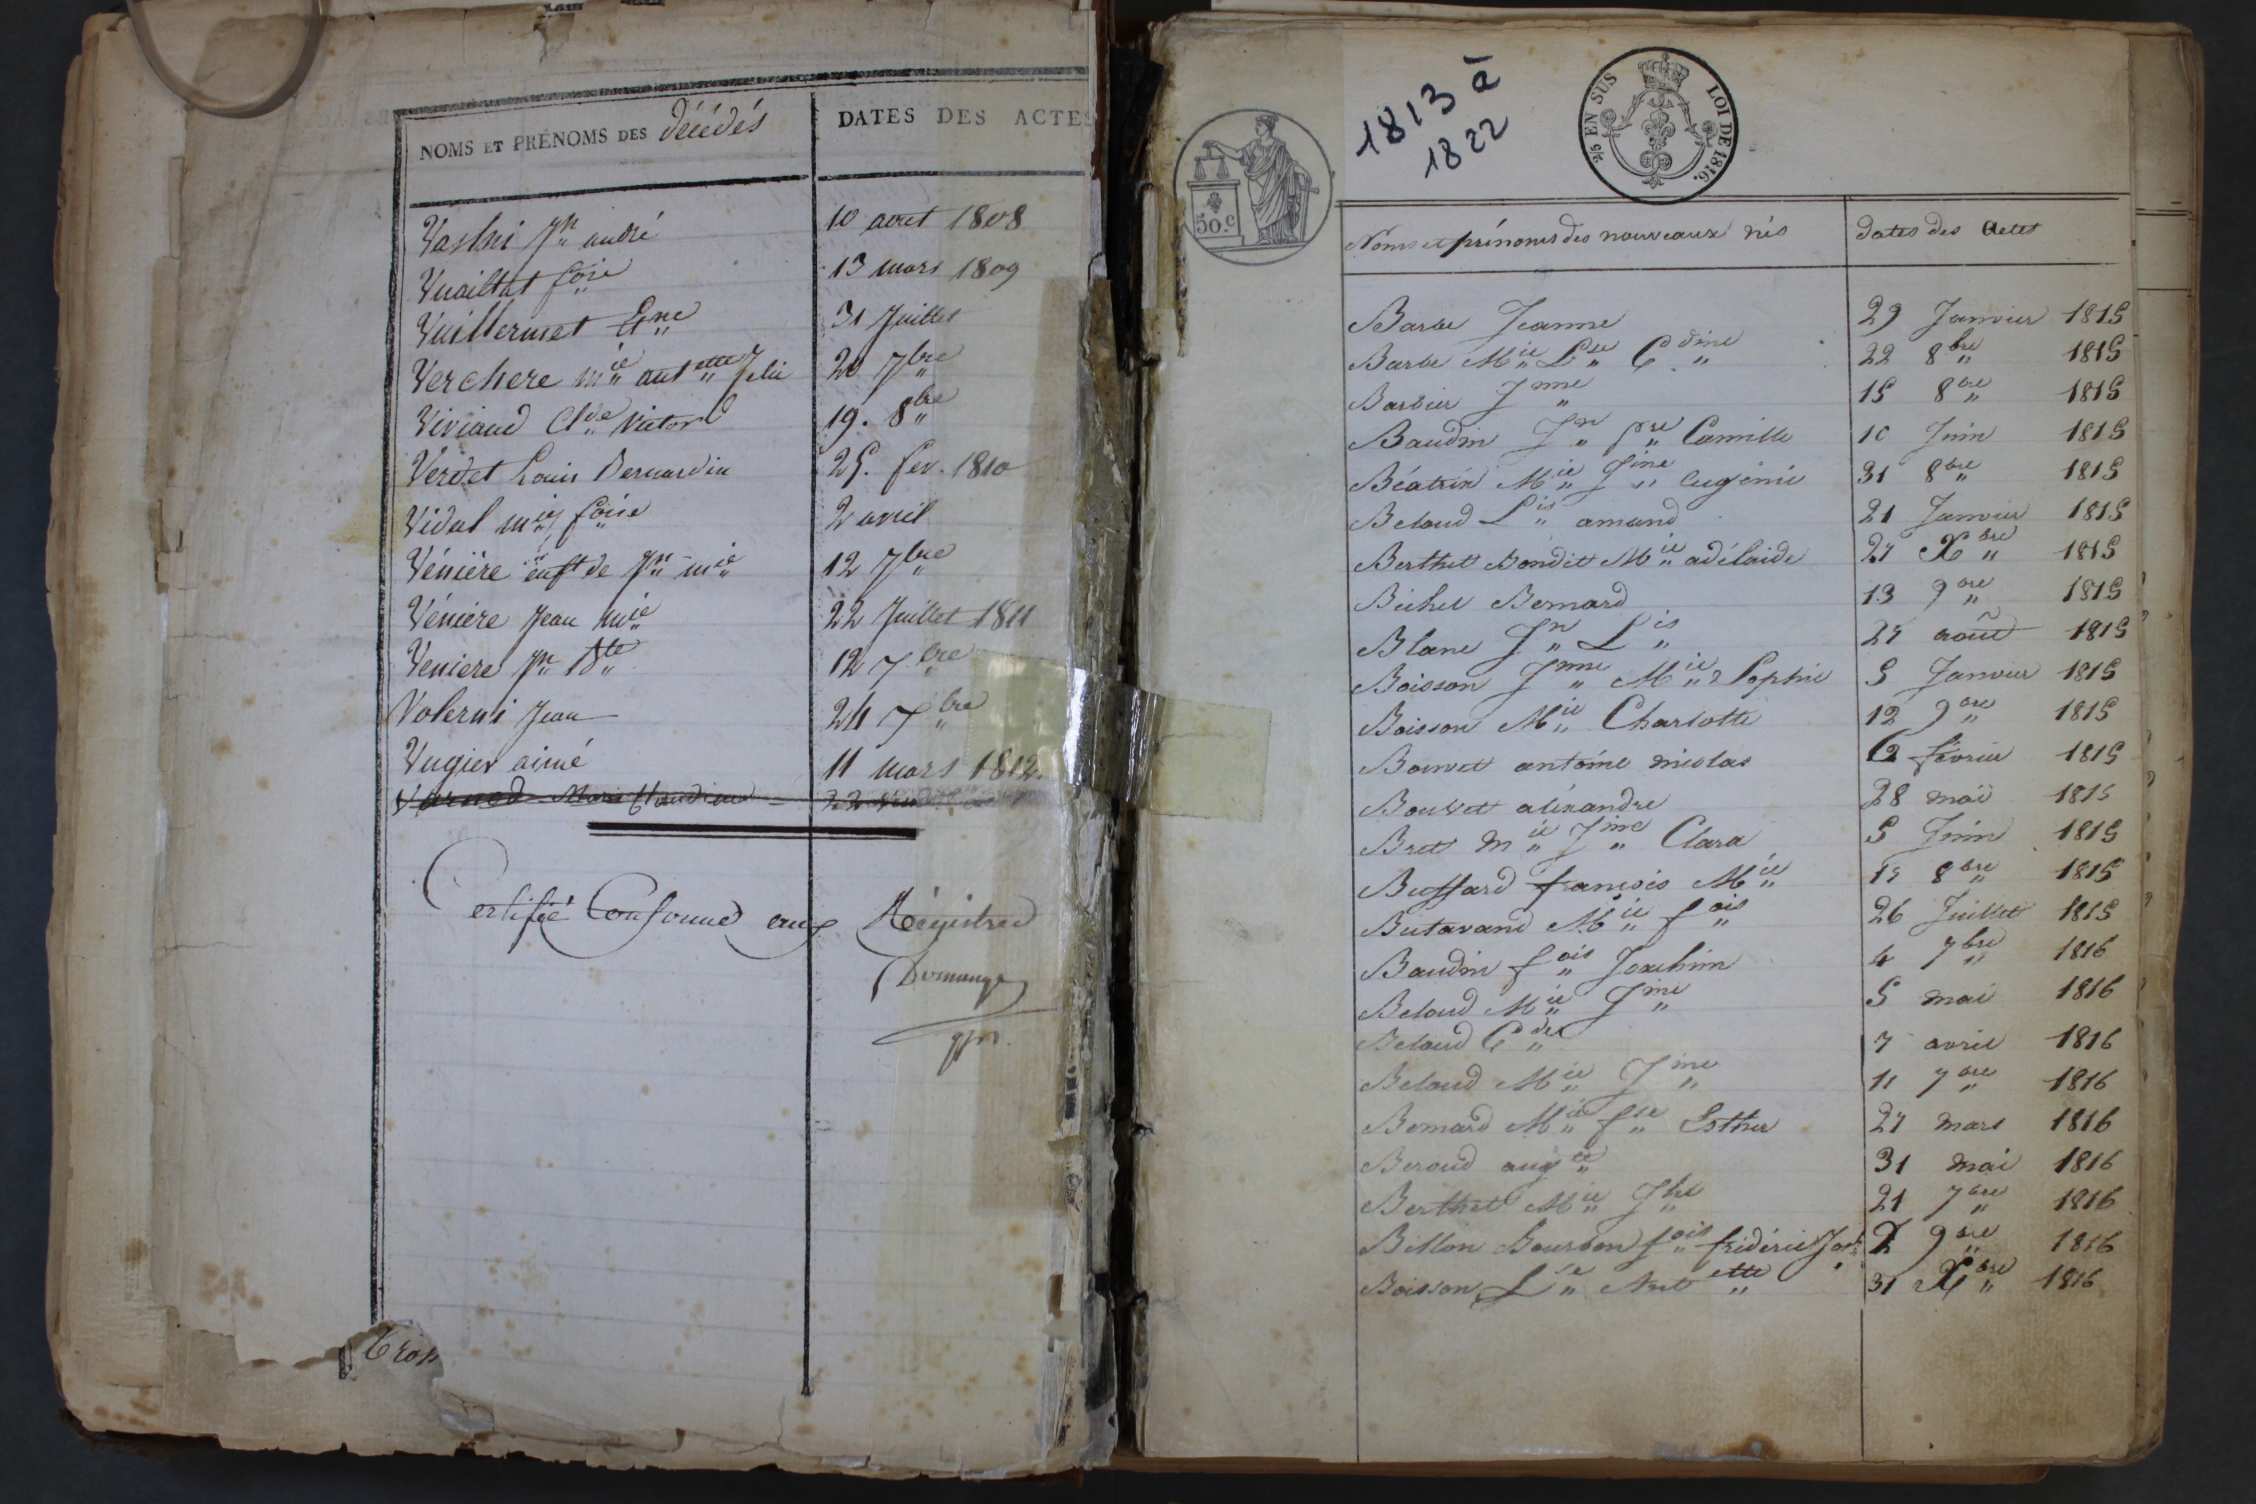 NOMS ET PRÉNOMS DES décédés
DATES DES ACTES
Vashni Jn andré 10 aout 1808
Vuaillat foise 13 mars 1809
Vuillermet Enne 31 Juillet
Verchere mie antette Julie 20 7bre
Viviand Clde Victor 19. 8bre
Verdet Louis Bernardin 25. fev. 1810
Vidal mie foise 2 avril
Vénière enft de Jn mie 12 7bre
Vénière Jean mie 22 Juillet 1811
Veniere Jn Bte 12 7bre
Volerni Jean 24 7bre
Vugier aimé 11 mars 1812.
Marie Claudine 22
Certifié Conforme aux Régistres
Domange
1813 à
1822
2/5 EN SUS LOI DE 1816.
50.c
Noms et prénoms des nouveaux nés
dates des Actes
Barbe Jeanne 29 Janvier 1815
Barbe Mie Lse Cdine 22 8bre 1815
Barbier Jnne 15 8bre 1815
Baudin Jn pre Camille 10 Juin 1815
Béatrix Mie Jine eugénie 31 8bre 1815
Beloud Lis amand 21 Janvier 1815
Berthet Bondit Mie adélaide 27 Xbre 1815
Bichet Bernard 13 9bre 1815
Blanc Jn Lis 27 août 1815
Boisson Jnne Mie Sophie 5 Janvier 1815
Boisson Mie Charlotte 12 9bre 1815
Bouvet antoine nicolas 2 février 1815
Bouvet aléxandre 28 mai 1815
Bret Mie Jine Clara 5 Juin 1815
Buffard françois Mie 17 8bre 1815
Butavand Mie fois 26 Juillet 1815
Baudin fois Joachim 4 7bre 1816
Beloud Mie Jine 5 mai 1816
Beloud Cde 7 avril 1816
Beloud Mie Jine 11 7bre 1816
Bernard Mie fse Esther 27 mars 1816
Beroud augte 31 mai 1816
Berthet Mie Jhe 21 7bre 1816
Billon Bourbon fois frédéric Jph 2 9bre 1816
Boisson Lse Antette 31 Xbre 1816